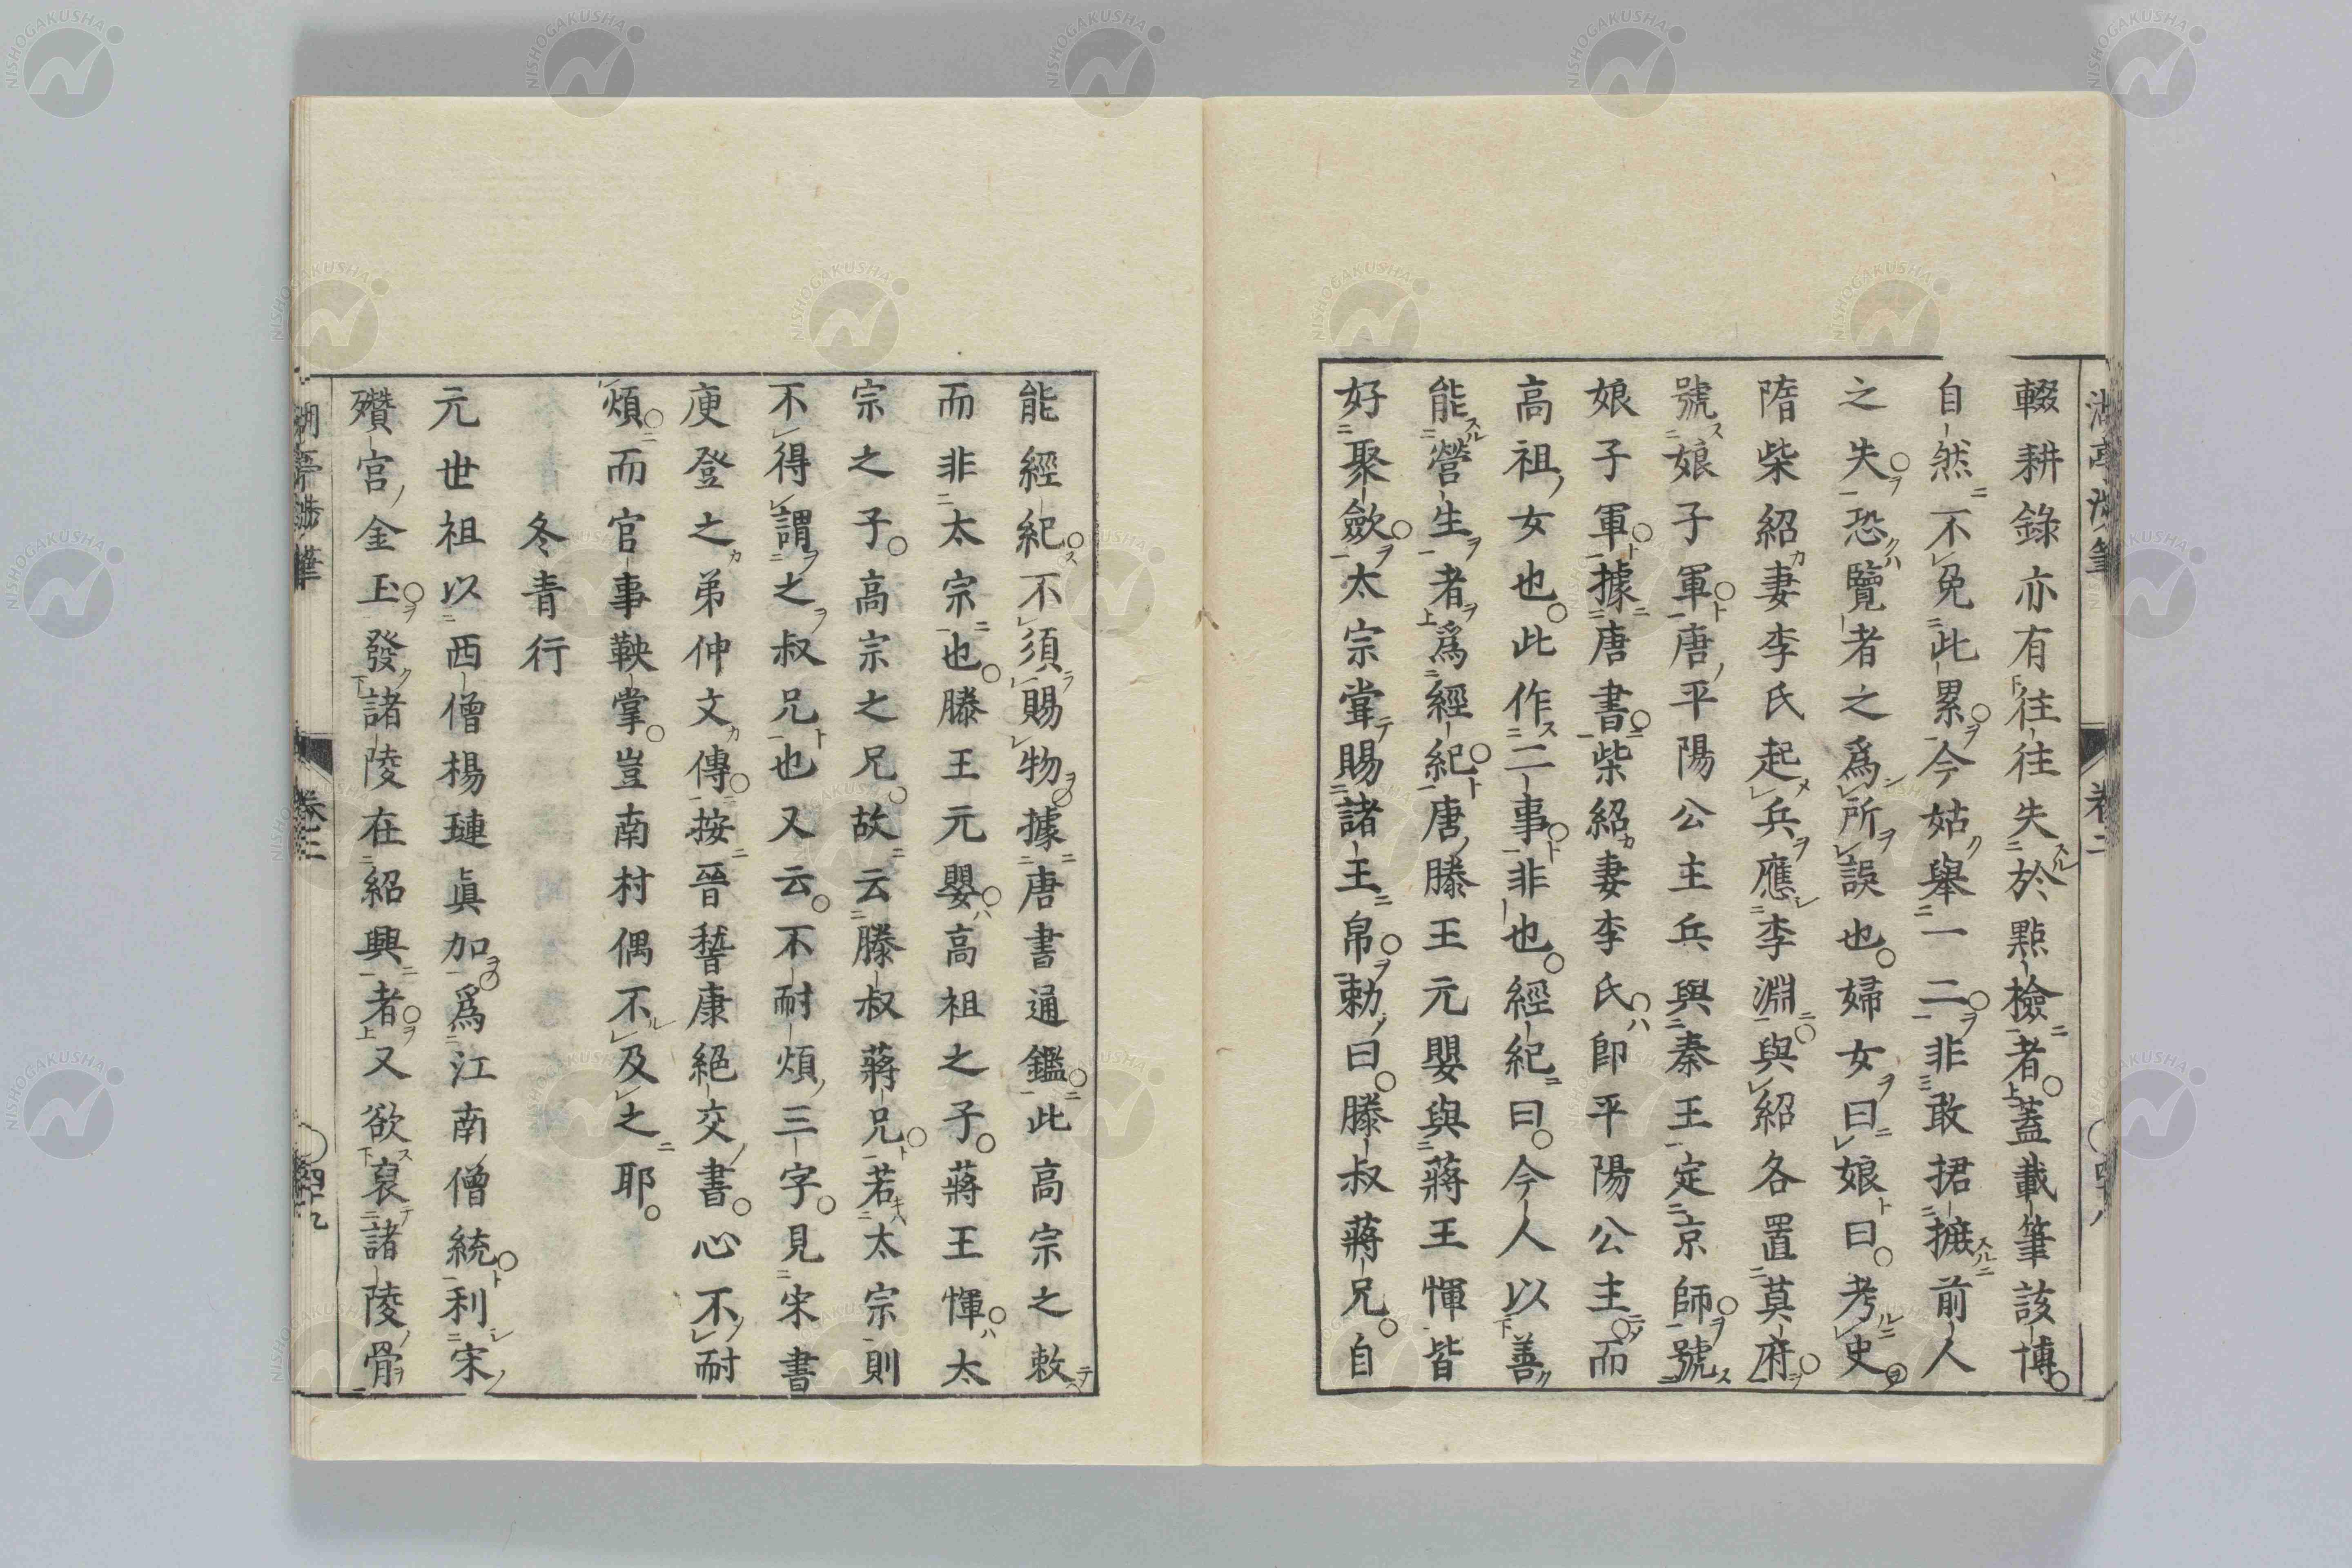 輟耕錄亦有往往失於點檢者蓋載筆該博
自然不免此累今姑舉一二非敢捃摭前人
之失恐覽者之爲所誤也婦女曰娘曰考史
隋柴紹妻李氏起兵應李淵與紹各置莫府
號娘子軍唐平陽公主兵與秦王定京師號
娘子軍據唐書柴紹妻李氏卽平陽公主而
高祖女也此作二事非也經紀曰今人以善
能營生者爲經紀唐滕王元嬰與蔣王惲皆
好聚歛太宗甞賜諸王帛勅曰滕叔蔣兄自
能經紀不須賜物據唐書通鑑此高宗之敕
而非太宗也滕王元嬰高祖之子蔣王惲太
宗之子高宗之兄故云滕叔蔣兄若太宗則
不得謂之叔兄也又云不耐煩三字見宋書
庾登之弟仲文傳按晉嵆康絕交書心不耐
煩而官事鞅掌豈南村偶不及之耶
冬青行
元世祖以西僧楊璉眞加爲江南僧統利宋
殯官金玉發諸陵在紹興者又欲裒諸陵骨
卷二
NISHOGAKUSHA